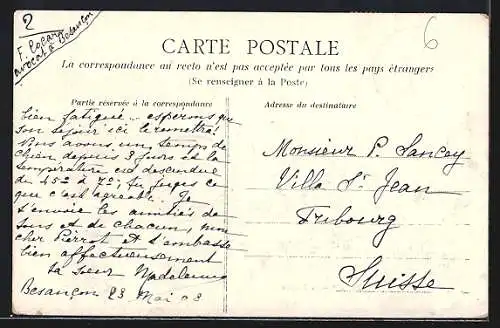 2
F. Locard
avocat à Besançon
6
CARTE POSTALE
La correspondance au recto n'est pas acceptée par tous les pays étrangers
(Se renseigner à la Poste)
Partie réservée à la correspondance
Adresse du destinataire
bien fatigué... esperons que
son séjour ici le remettra!
Nous avons un temps de
chien depuis 3 jours et la
température est descendue
de 45° à 7°; tu juges ce
que c'est agréable. Je
t'envoie les amitiés de
tous et de chacun, mon
cher Pierrot et t'embrasse
bien affectueusement
ta sœur Madeleine
Besançon 23 Mai 03
Monsieur P. Sancey
Villa St Jean
Fribourg
Suisse